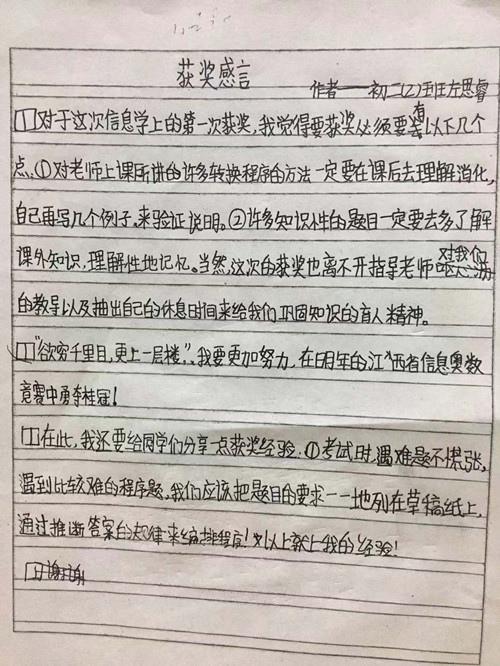 获奖感言
作者——初二(2)班左思睿
对于这次信息学上的第一次获奖,我觉得要获奖必须要有以下几个
点、①对老师上课所讲的许多转换程序的方法一定要在课后去理解消化,
自己再写几个例子,来验证说明。②许多知识性的题目一定要去多了解
课外知识,理解性地记忆。当然,这次的获奖也离不开指导老师对我们
的教导以及抽出自己的休息时间来给我们巩固知识的育人精神。
“欲穷千里目,更上一层楼”、我要更加努力,在明年的江西省信息奥数
竞赛中勇夺桂冠!
在此,我还要给同学们分享一点获奖经验.①考试时,遇难题不慌张,
遇到比较难的程序题,我们应该把题目的要求一一地列在草稿纸上,
通过推断答案的规律来编排程序!以上就是我的经验!
谢谢